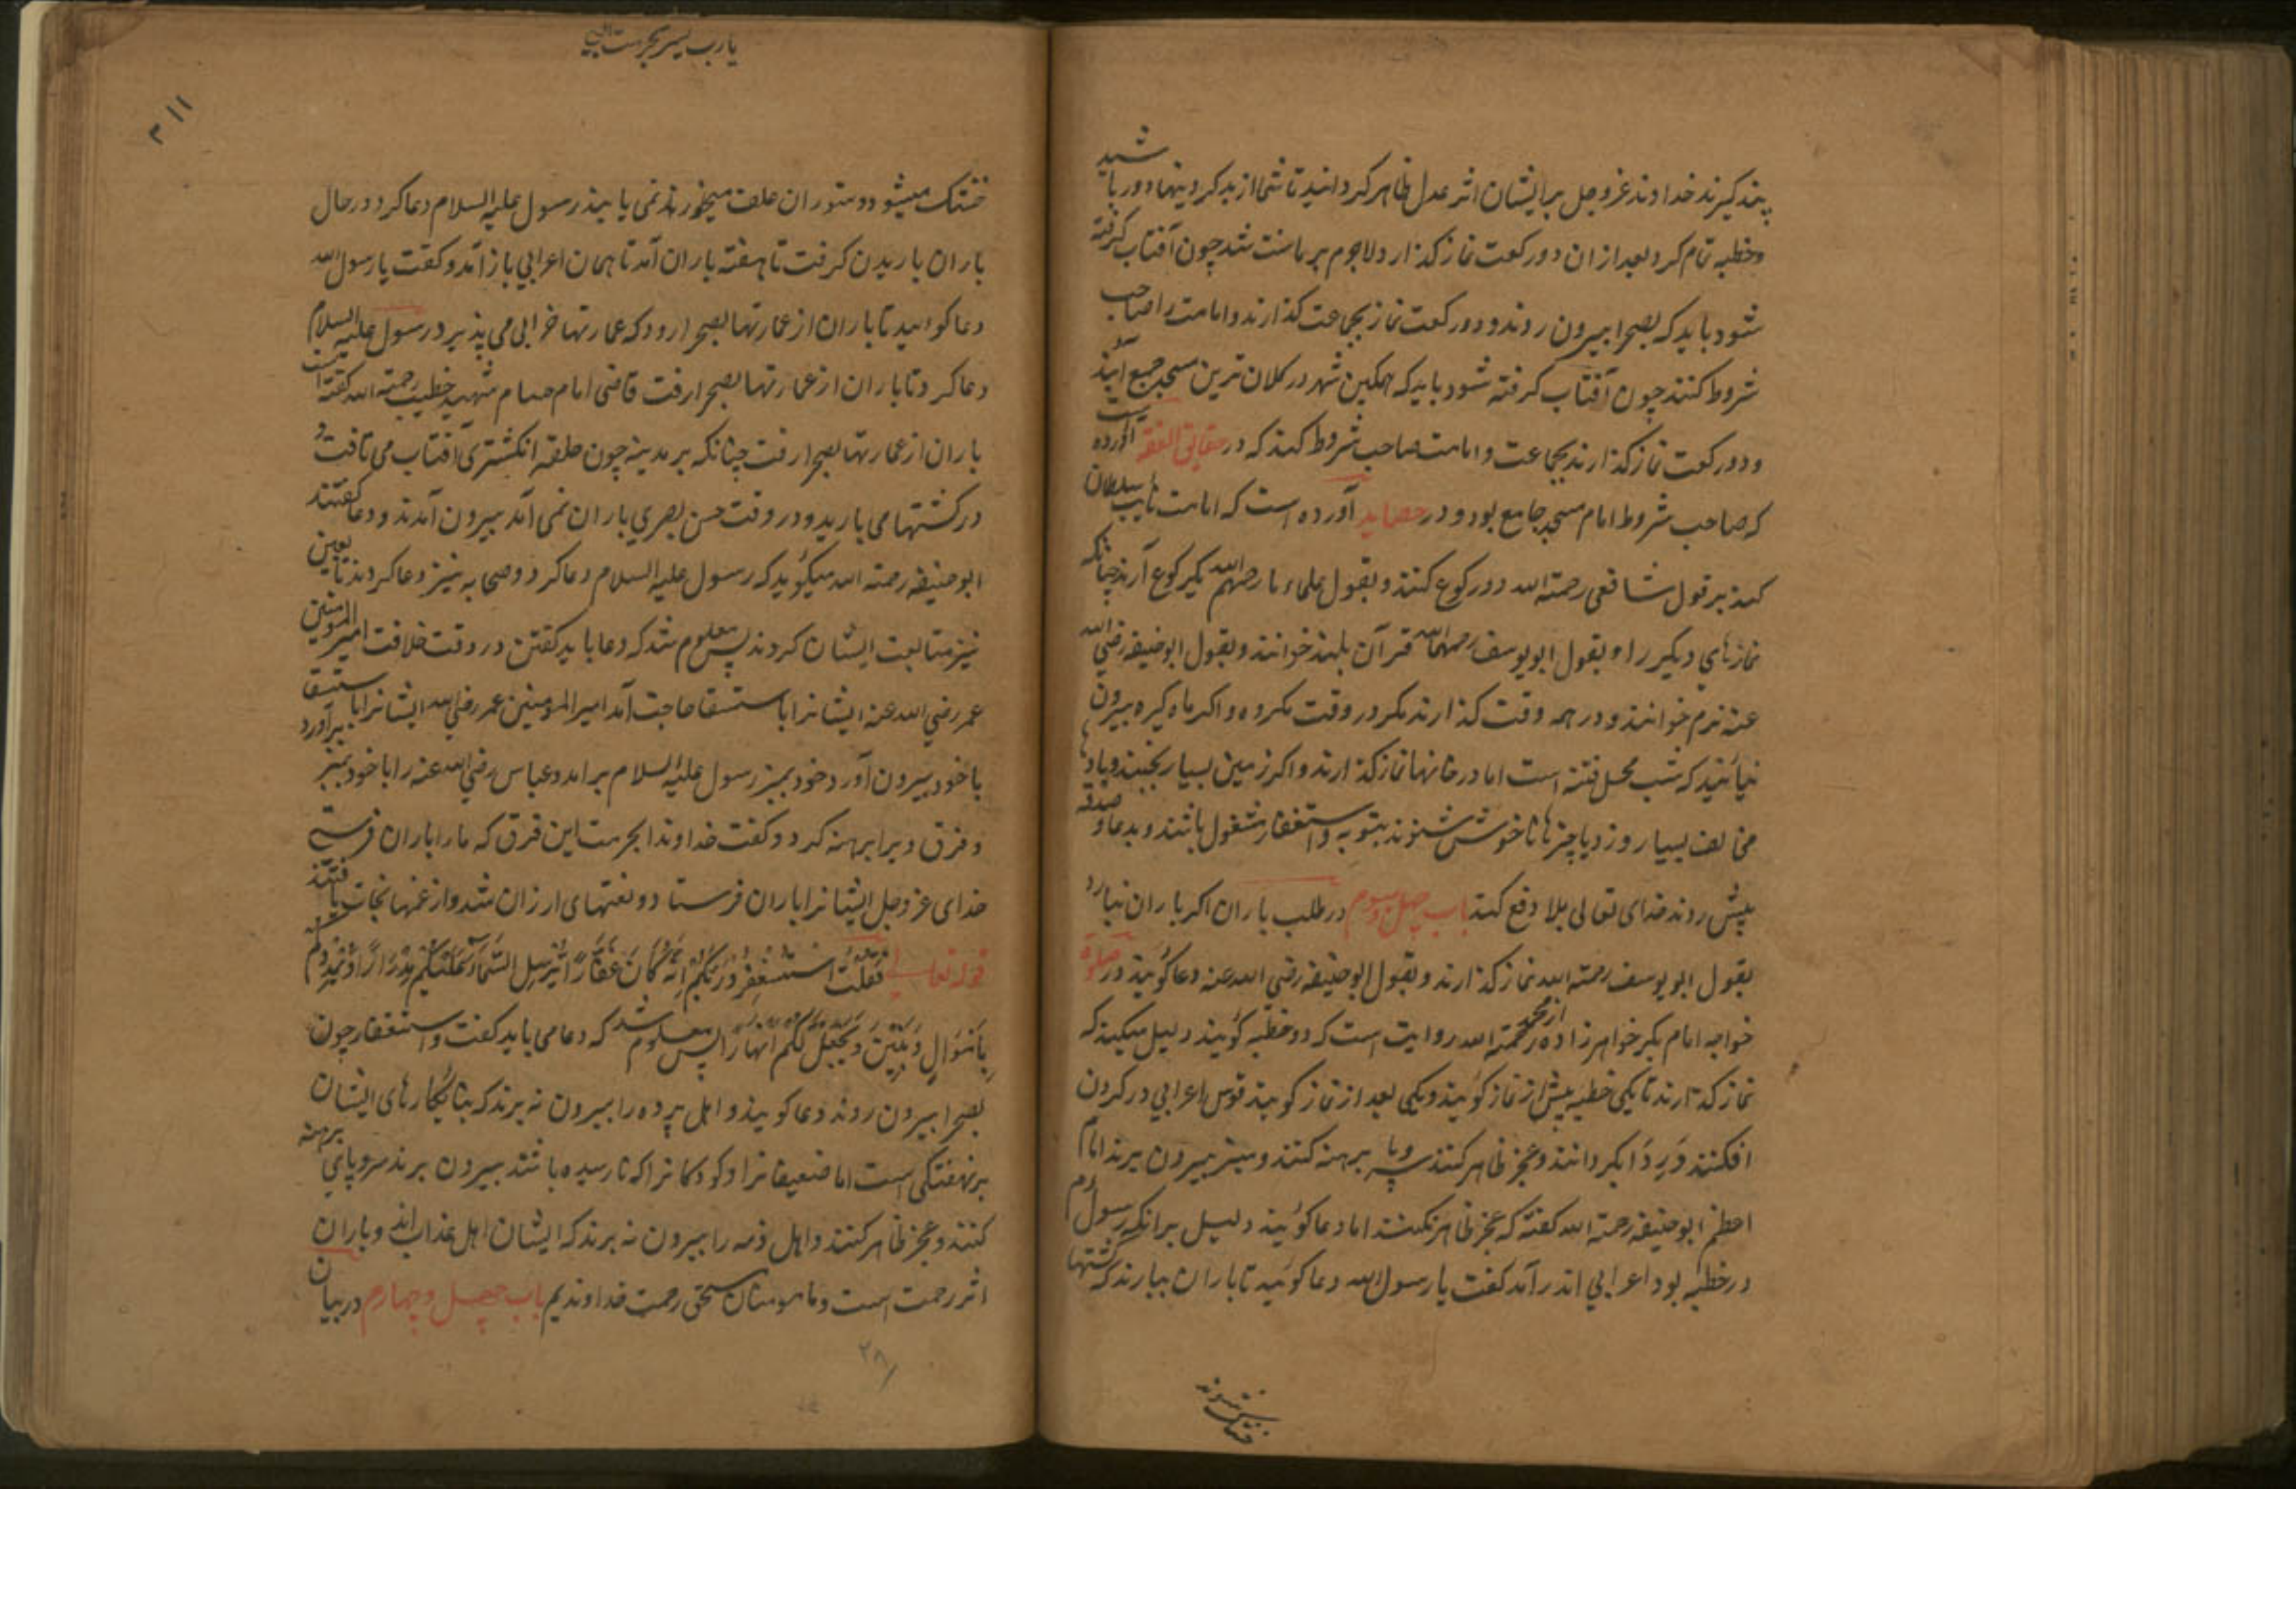 پند گیرند خداوند عزوجل بر ایشان اثر عدل ظاهر گردانید تا شما از بد کردنیها دور باشید
و خطبه تمام کرد بعد از ان دو رکعت نماز گذارد لاجرم بر ما سنت شد چون آفتاب گرفته
شود باید که بصحرا بیرون روند و دو رکعت نماز بجماعت گذارند و امامت را صاحب
شروط کنند چون آفتاب گرفته شود باید که همکین شهر در کلان ترین مسجد جمع آیند
و دو رکعت نماز گذارند بجماعت و امامت صاحب شروط کند که در حقایق الفقه آورده است
که صاحب شروط امام مسجد جامع بود و در حصاید آورده است که امامت نایب سلطان
کند بر قول شافعی رحمته الله دو رکوع کنند و بقول علماء ما رحمهم الله یک رکوع آرند چنانکه
نمازهای دیگر را و بقول ابو یوسف رحمهما الله قرآن بلند خوانند و بقول ابوحنیفه رضی الله
عنه نرم خوانند و در همه وقت گذارند مگر در وقت مکروه و اگر ماه گیره بیرون
نیایند که شب محل فتنه است اما در خانها نماز گذارند و اگر زمین بسیار بجنبد و بادها
مخالف بسیار وزد یا چیزها ناخوش شنوند بتوبه و استغفار مشغول باشند و بدعا و صدقه
پیش روند خدای تعالی بلا دفع کند باب چهل و سوم در طلب باران اکر باران نبارد
بقول ابو یوسف رحمته الله نماز گذارند و بقول ابوحنیفه رضی الله عنه دعا گویند در صلوة
خواجه امام بکر خواهرزاده از محمد رحمته الله روایت است که دو خطبه گویند دلیل میکند که
نماز گذارند تا یکی خطبه پیش از نماز گویند و یکی بعد از نماز گویند قوس اعرابی در گردن
افکنند و ردا بگردانند و عجز ظاهر کنند سر و پا برهنه کنند و منبر بیرون برند امام
اعظم ابوحنیفه رحمته الله گفته که عجز ظاهر نکنند اما دعا گویند دلیل برانکه رسول عم
در خطبه بود اعرابی اندر آمد گفت یا رسول الله دعا گویید تا باران ببارند که کشتها
خشک میشوند
یارب یسر بحرمت النبی
۲۱۱
خشک میشود و ستوران علف میخورند نمی یابند رسول علیه السلام دعا کرد در حال
باران باریدن گرفت تا هفته باران آمد تا همان اعرابی باز آمد و گفت یا رسول الله
دعا گوایید تا باران از عمارتها بصحرا رود که عمارتها خرابی می پذیرد رسول علیه السلام
دعا کرد تا باران از عمارتها بصحرا رفت قاضی امام حسام شهید خطیب رحمته الله گفته است
باران از عمارتها بصحرا رفت چنانکه بر مدینه چون حلقه انگشتری آفتاب می تافت و
در کشتها می بارید و در وقت حسن بصری باران نمی آمد بیرون آمدند و دعا گفتند
ابوحنیفه رحمته الله میگوید که رسول علیه السلام دعا کرد و صحابه نیز دعا کردند تابعین
نیز متابعت ایشان کردند پس معلوم شد که دعا باید گفتن در وقت خلافت امیر المومنین
عمر رضی الله عنه ایشانرا با ستسقا حاجت آمد امیر المومنین عمر رضی الله ایشانرا با ستسقا
با خود بیرون آورد و خود بمنبر رسول علیه السلام برامد و عباس رضی الله عنه را با خود بمنبر برآورد
و فرق ویرا برهنه کرد و گفت خداوندا بحرمت این فرق که ما را باران فرست
خدای عز وجل ایشانرا باران فرستاد و نعتهای ارزان شد و از غمها نجات یافتند
قوله تعالی فَقُلْتُ اسْتَغْفِرُوا رَبَّكُمْ إِنَّهُ كَانَ غَفَّارًا يُرْسِلِ السَّمَاءَ عَلَيْكُمْ مِدْرَارًا وَيُمْدِدْكُمْ
بِأَمْوَالٍ وَبَنِينَ وَيَجْعَلْ لَكُمْ أَنْهَارًا پس معلوم شد که دعا می باید گفت و استغفار چون
بصحرا بیرون روند دعا گویند و اهل پرده را بیرون نه برند که بنا کارهای ایشان
بر نهفتگی است اما ضعیفانرا و کودکانرا که نارسیده باشند بیرون برند سر و پای برهنه
کنند و عجز ظاهر کنند و اهل ذمه را بیرون نه برند که ایشان اهل عذاب اند و باران
اثر رحمت است و ما مومنان مستحق رحمت خداوندیم باب چهل و چهارم در بیان
۲۸